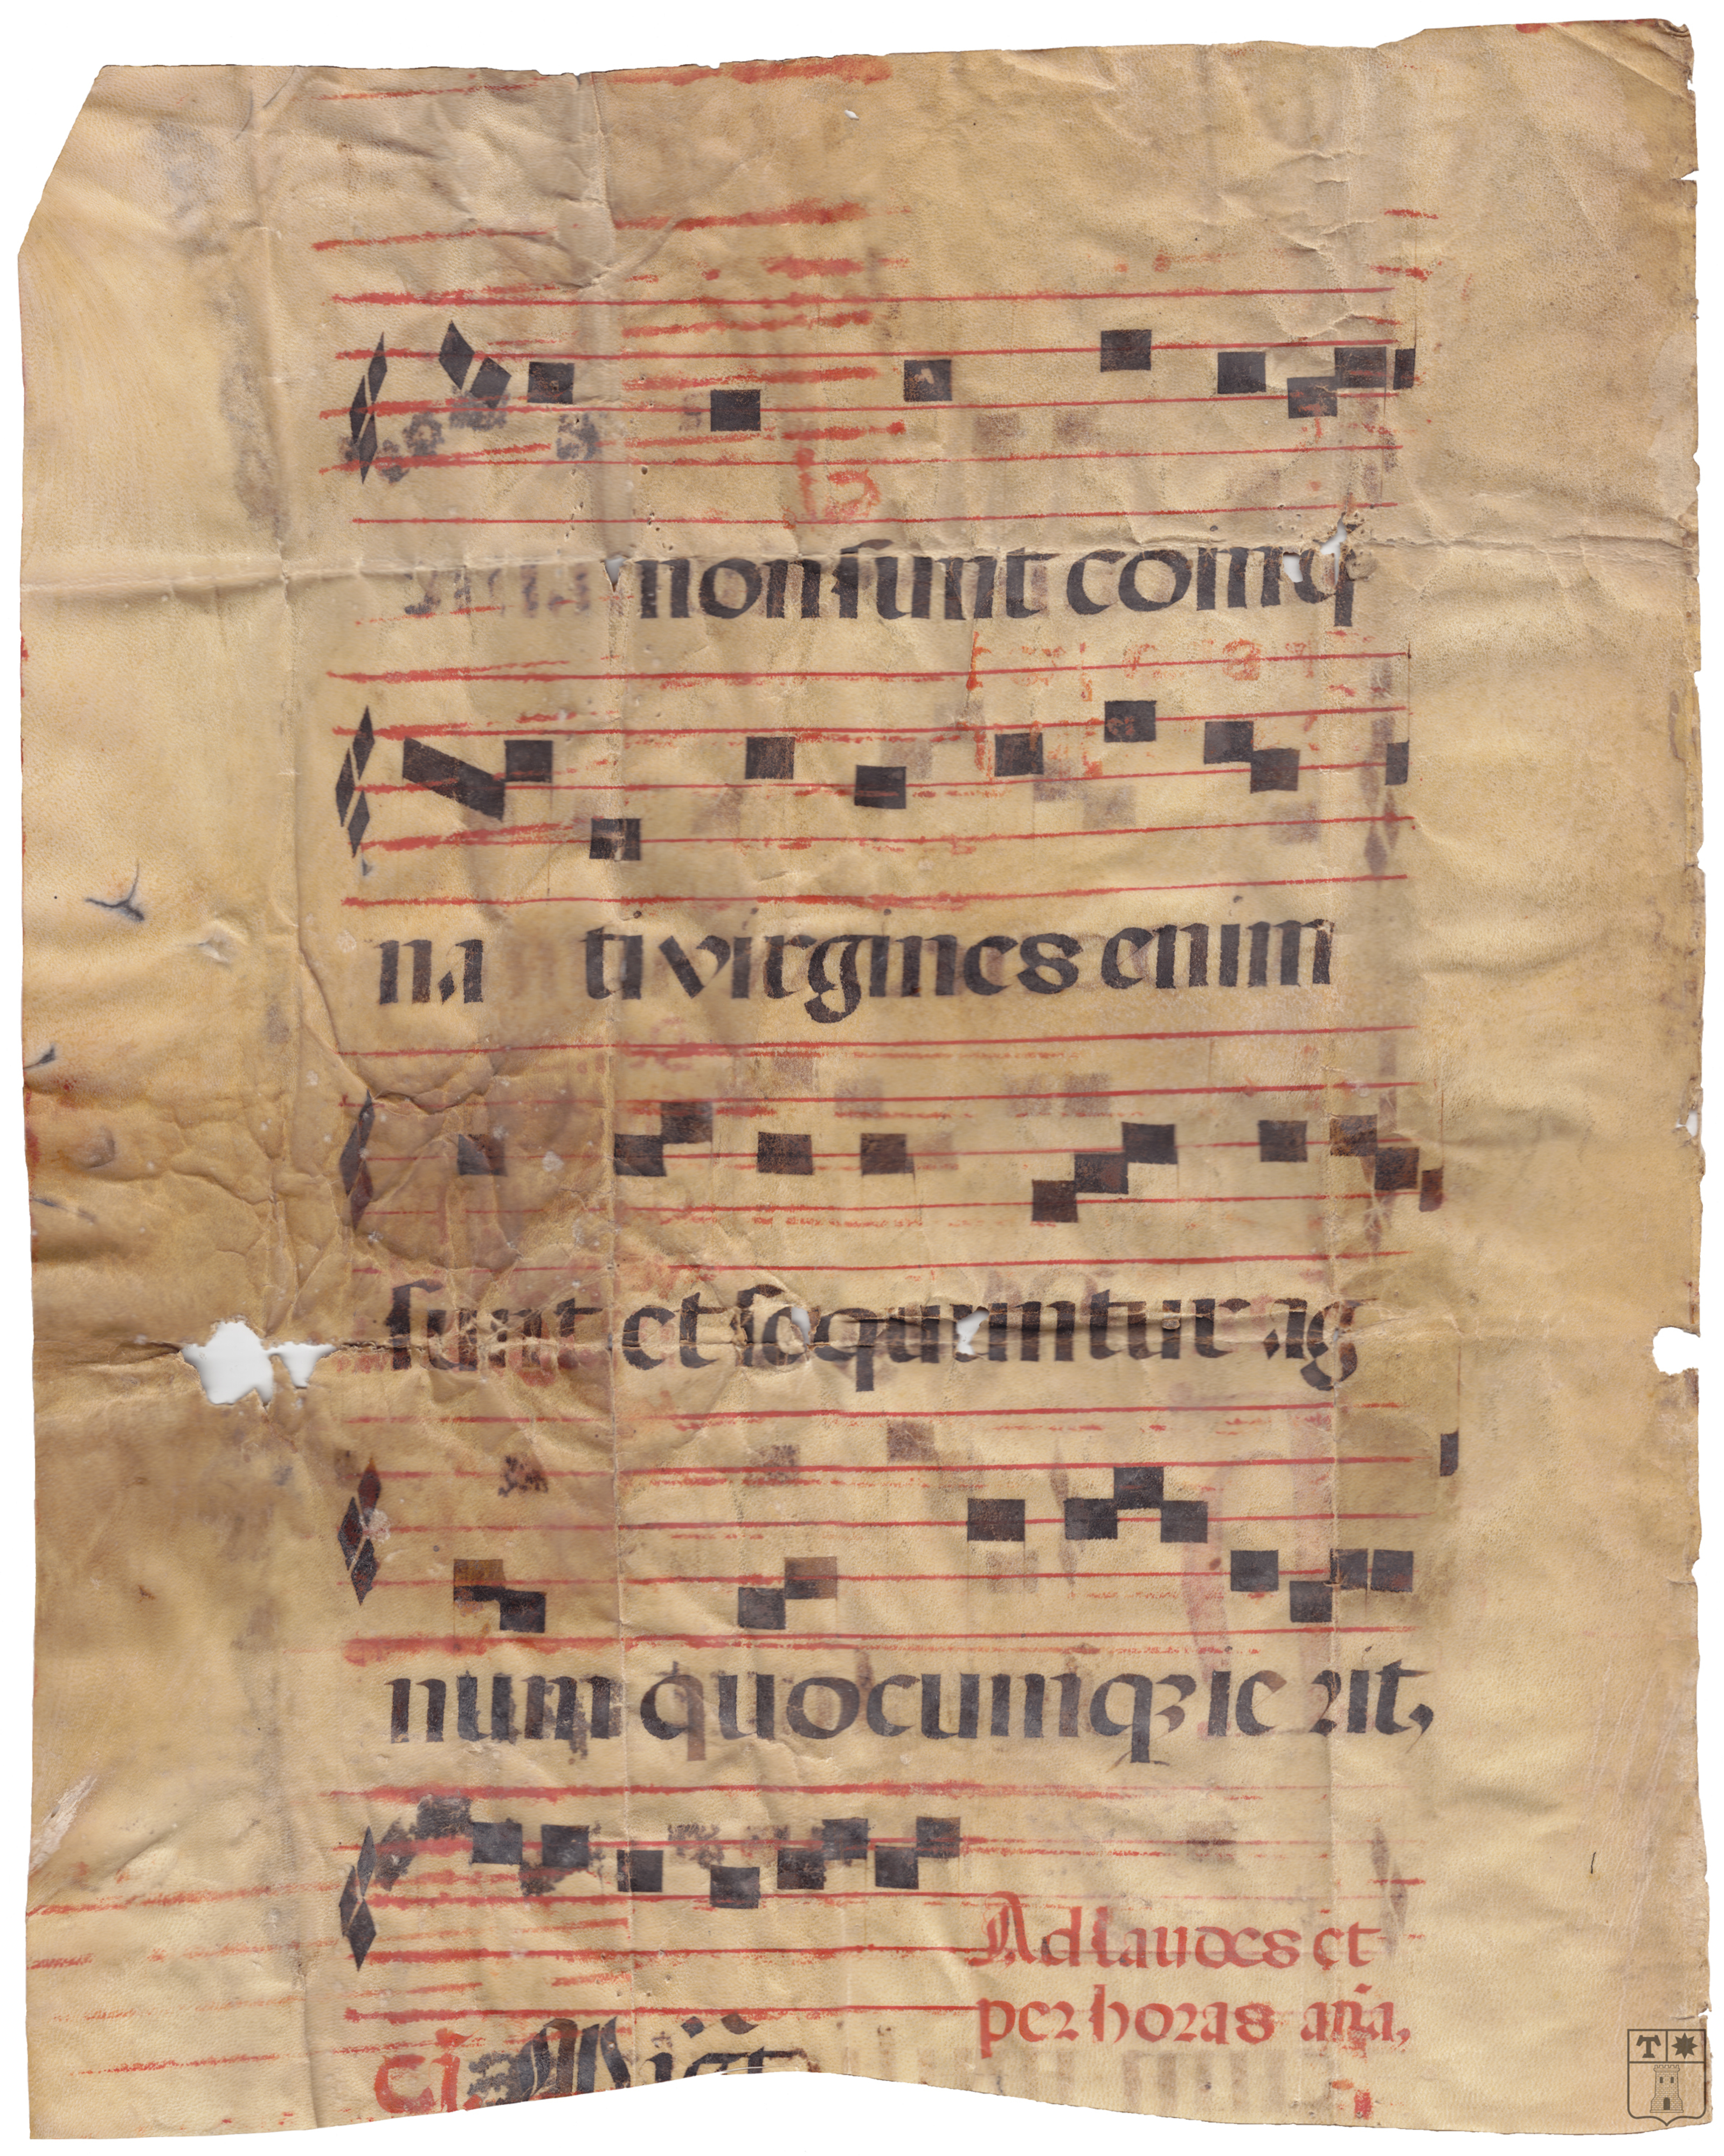 non sunt coinq
na ti virgines enim
sunt et sequuntur ag
num quocumqꝫ ie rit,
Ad laudes et
per horas an̄a,
T